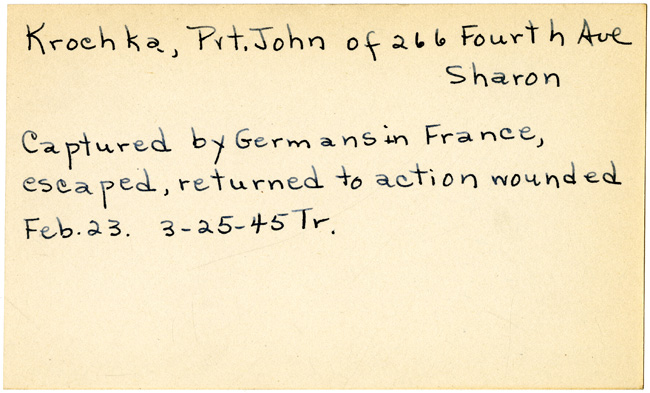 Krochka, Pvt. John of 266 Fourth Ave
Sharon
Captured by Germans in France,
escaped, returned to action wounded
Feb. 23. 3-25-45 Tr.